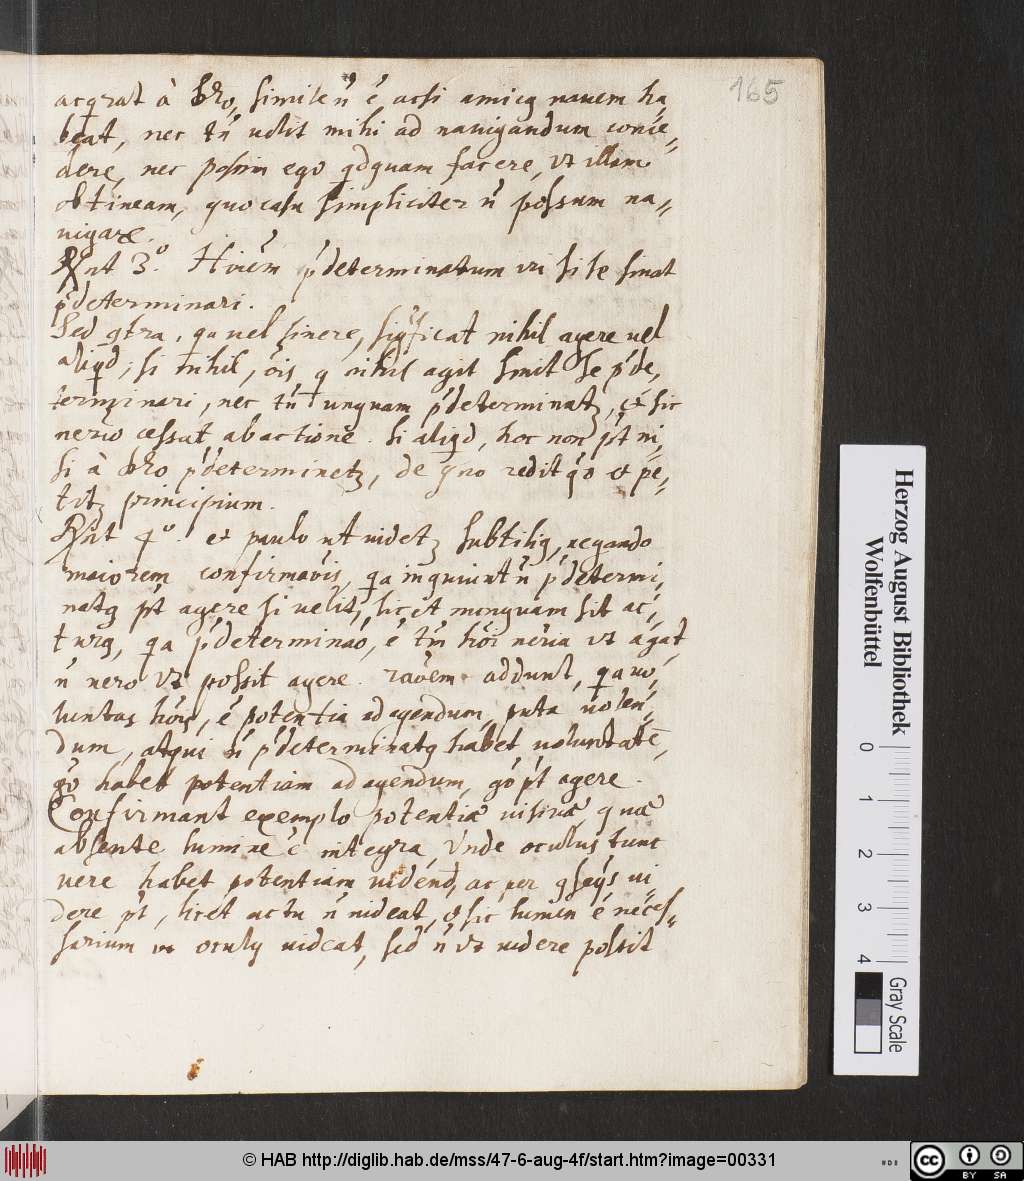 165
acqrat à Deo, simile n̄ ē, acsi amicq navem ha
beat, nec tn̄ velit mihi ad navigandum conce=
dere, nec possim ego qdquam facere, vt illam
obtineam, quo casu simpliciter n̄ possum na=
vigare.
Rn̄t 3.º p̄determinatum iri si se sinat
p̄determinari.
Sed 9tra, qa vel sinere, sigficat nihil agere vel
aliqd; si nihil, ōis q nihil agit sinit se p̄de,
terminari, nec tn̄ unquam p̄determinatz, & sic
cessat ab actione. si aliqd, hoc non pt̄ ni,
si à Deo p̄determinetz, de quo redit & pe=
titz principium.
Rn̄t 4º. et paulo ut videtz subtiliq, negando
maiorem confirmaōis, qa inquiunt n̄ p̄determi,
natq pt̄ agere si velit, licet nunquam sit ac,
turq, qa p̄determinaō, ē tm̄ hōi neria vt agat
n̄ vero vt possit agere. raōem addunt, qa vo,
luntas hōis, ē potentia ad agendum, puta volen=
dum, atqui n̄ p̄determinatq habet voluntatē,
gō habet potentiam ad agendum, gō pt̄ agere.
Confirmant exemplo potentiæ visivæ, quæ
absente lumine ē integra, Unde oculus tunc
vere habet potentiam videnđ, ac per 9seqs vi
dere pt̄, licet actu n̄ videat, & sic lumen ē neces=
sarium ut oculq videat, sed n̄ vt videre possit
Herzog August Bibliothek
Wolfenbüttel
0 1 2 3 4
Gray Scale
© HAB http://diglib.hab.de/mss/47-6-aug-4f/start.htm?image=00331
cc BY SA